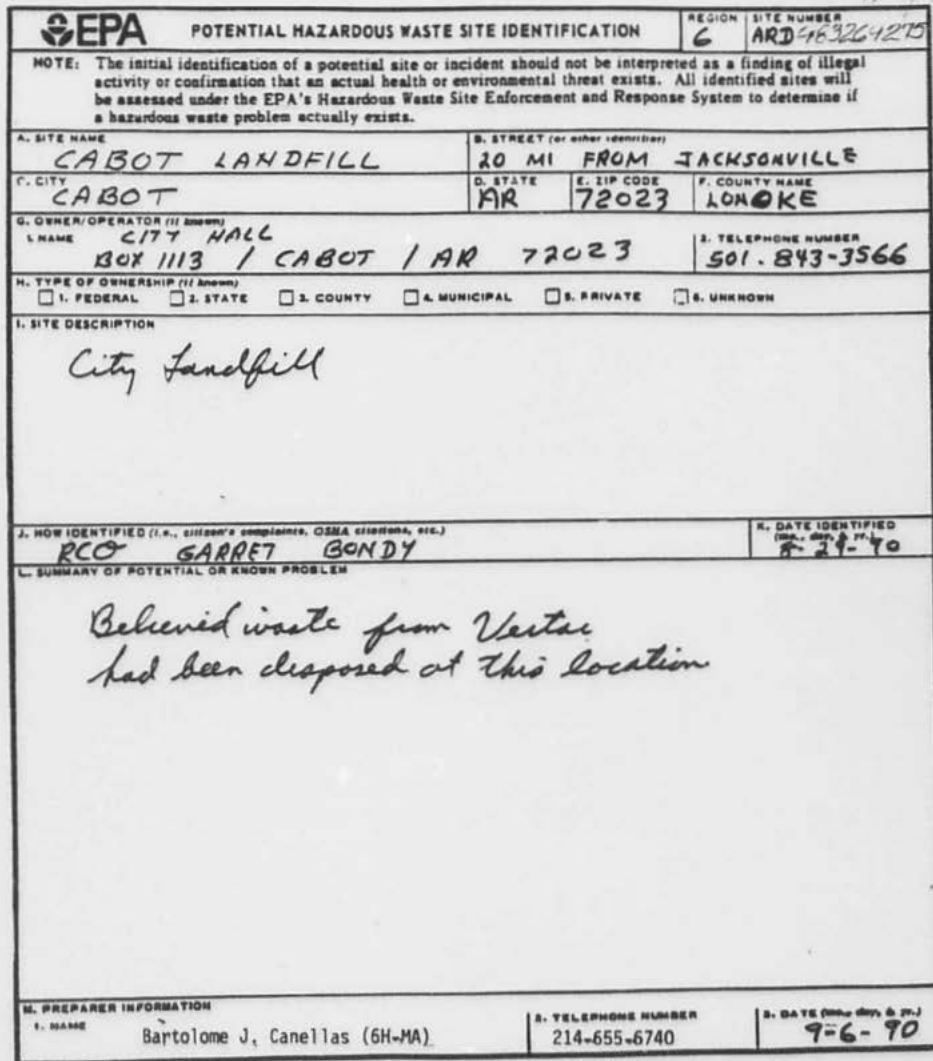 EPA POTENTIAL HAZARDOUS WASTE SITE IDENTIFICATION
REGION 6
SITE NUMBER ARD
NOTE: The initial identification of a potential site or incident should not be interpreted as a finding of illegal
activity or confirmation that an actual health or environmental threat exists. All identified sites will
be assessed under the EPA's Hazardous Waste Site Enforcement and Response System to determine if
a hazardous waste problem actually exists.
A. SITE NAME
CABOT LANDFILL
B. STREET (or other identifier)
20 MI FROM JACKSONVILLE
C. CITY
CABOT
D. STATE
AR
E. ZIP CODE
72023
F. COUNTY NAME
LONOKE
G. OWNER/OPERATOR (if known)
1. NAME CITY HALL
BOX 1113 / CABOT / AR 72023
2. TELEPHONE NUMBER
501.843-3566
H. TYPE OF OWNERSHIP (if known)
1. FEDERAL 2. STATE 3. COUNTY 4. MUNICIPAL 5. PRIVATE 6. UNKNOWN
I. SITE DESCRIPTION
City Landfill
J. HOW IDENTIFIED (i.e., citizen's complaints, OSHA citations, etc.)
RCO GARRET BONDY
K. DATE IDENTIFIED
(mo., day, & yr.)
29-90
L. SUMMARY OF POTENTIAL OR KNOWN PROBLEM
Believed waste from Vertac
had been disposed at this location
M. PREPARER INFORMATION
1. NAME
Bartolome J. Canellas (6H-MA)
2. TELEPHONE NUMBER
214-655-6740
3. DATE (mo., day, & yr.)
9-6-90